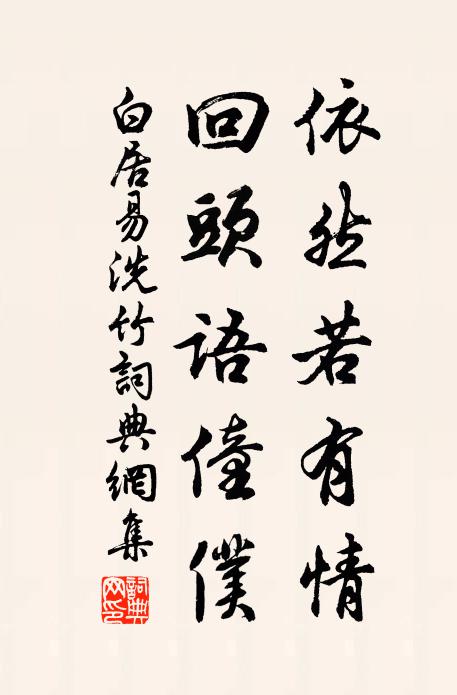 依然若有情
回頭語僮僕
白居易洗竹詞典網集
詞典網印